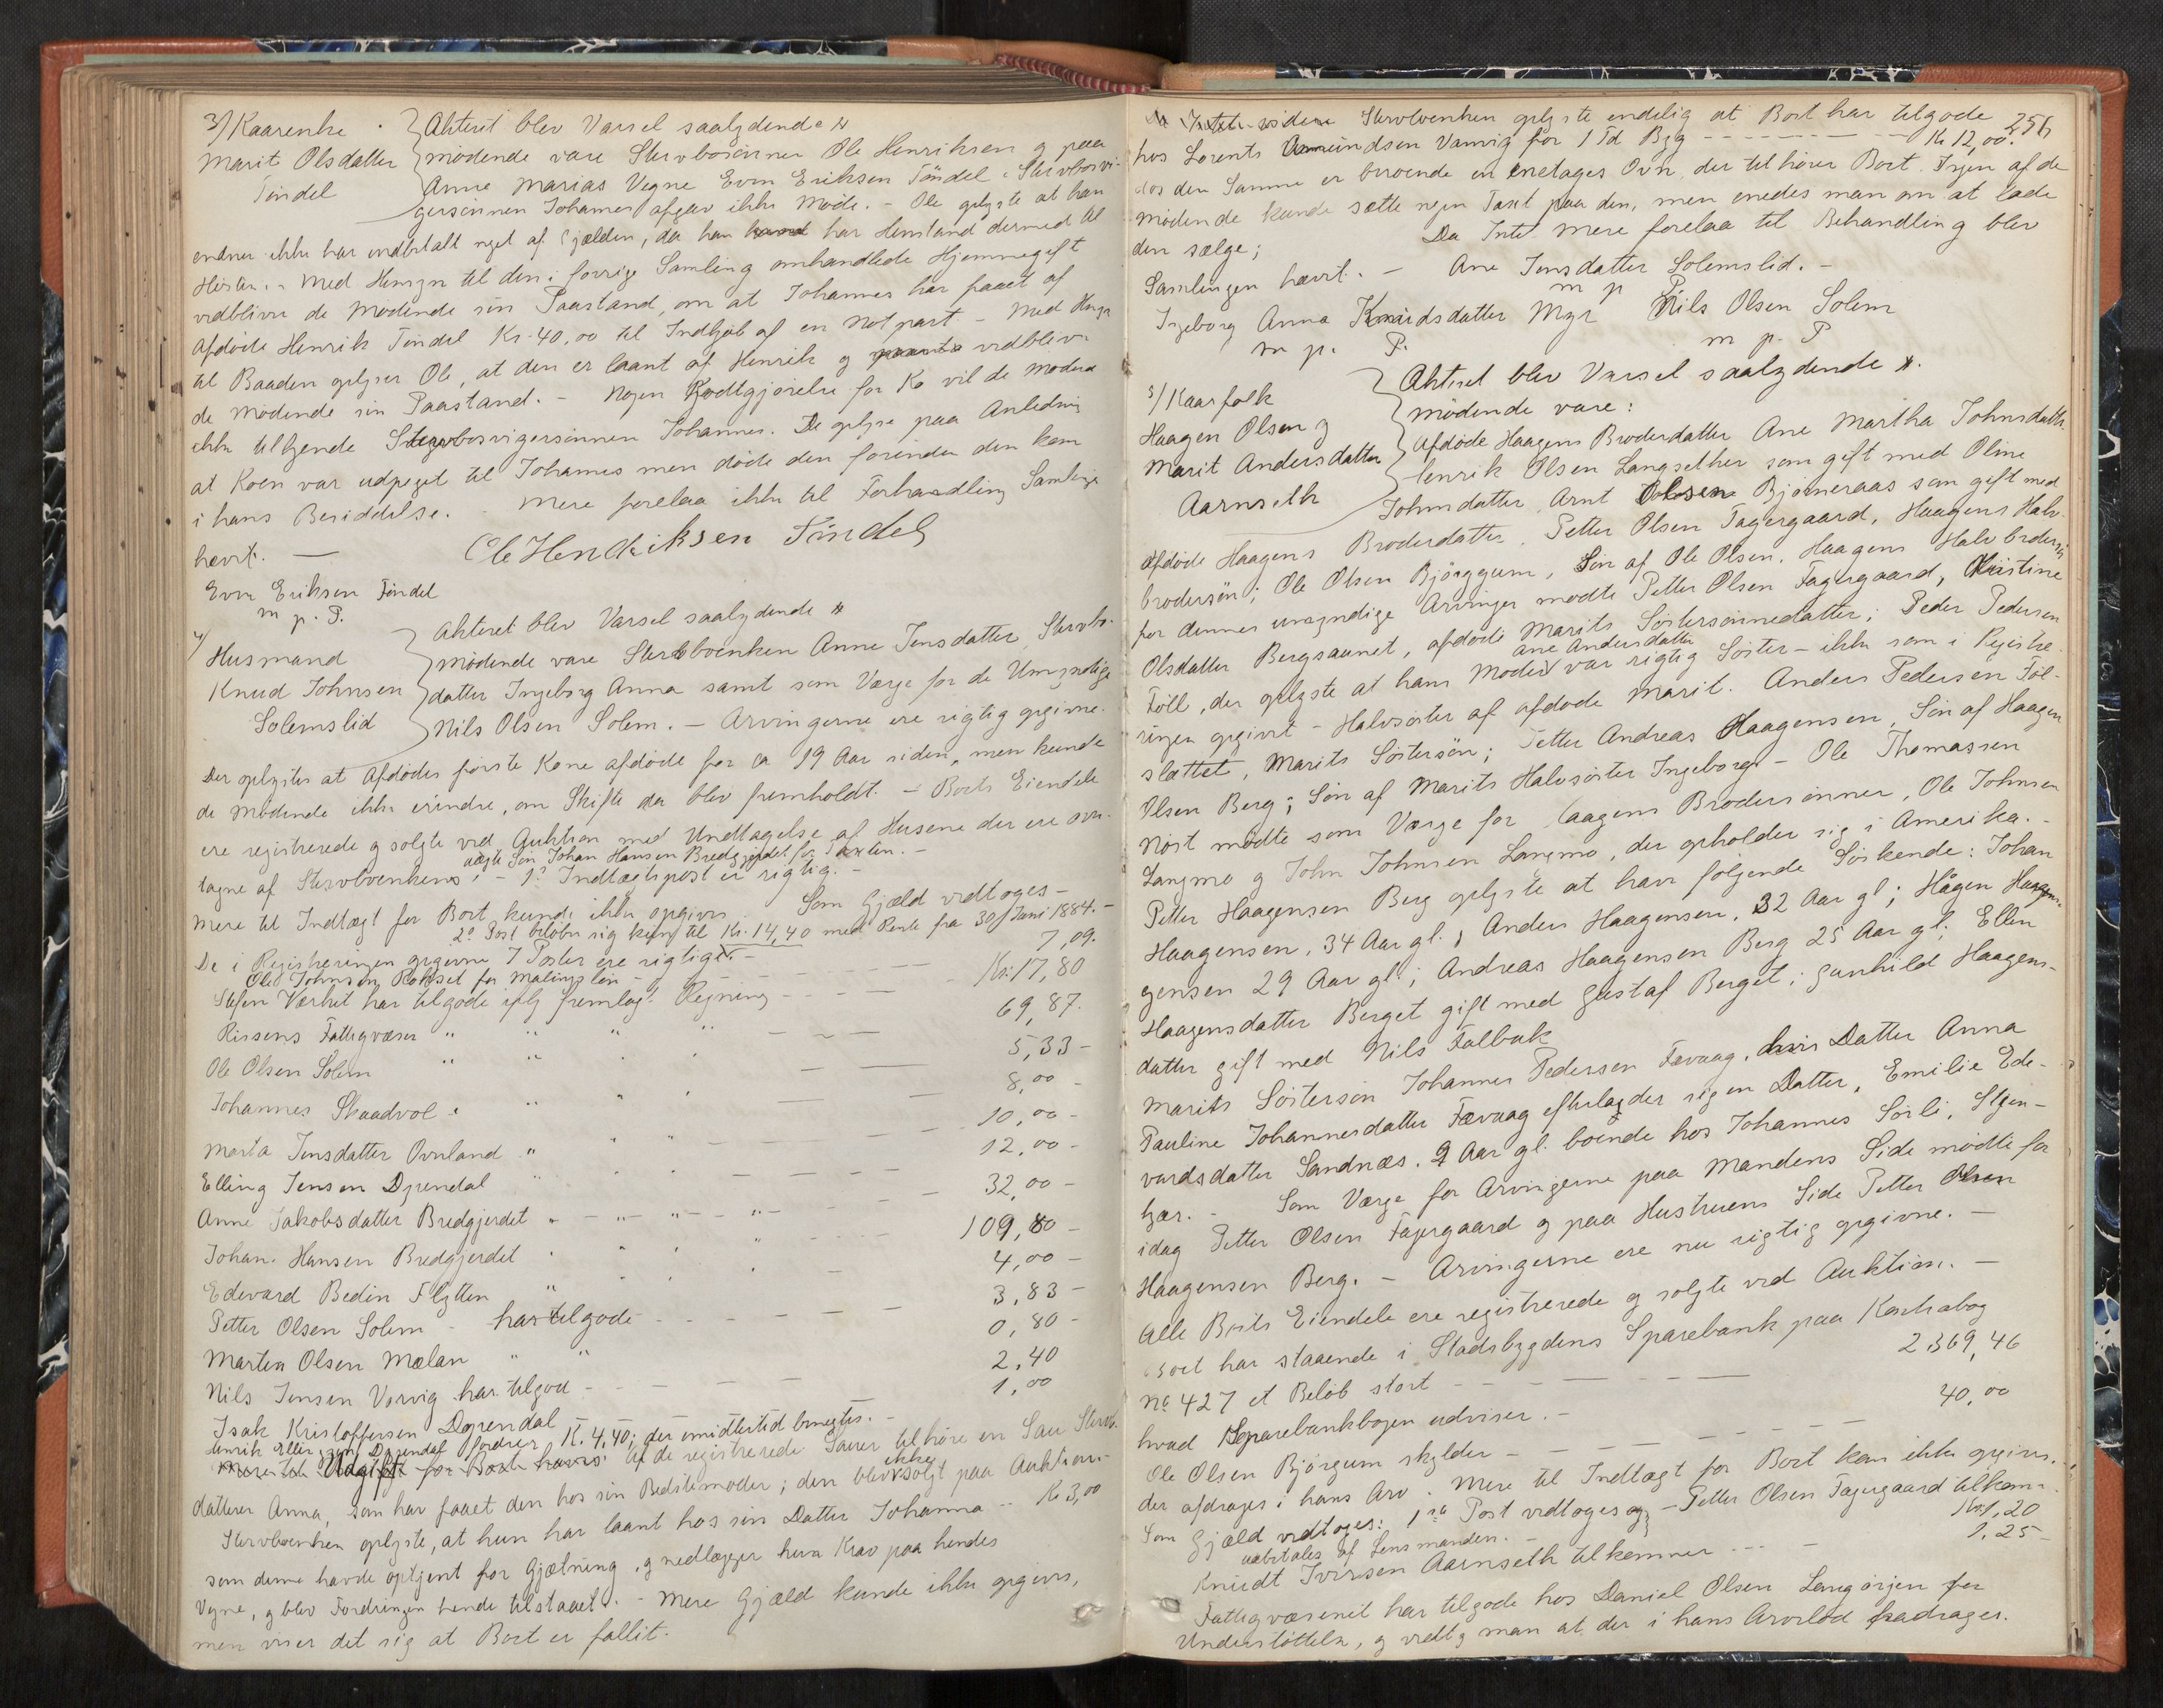 3/ Kaarenke
Marit Olsdatter
Tøndel
Akteret blev Varsel saalydende //
mødende vare Stervbosønnen Ole Henriksen og paa
Anne Marias Vegne Even Eriksen Tøndel. Stervbosvi-
gersønnen Johannes afgav ikke Møde. - Ole oplyste at han
endnu ikke har indbetalt noget af Gjælden, da han har Henstand dermed til
Høsten. - Med Hensyn til den i forrige Samling omhandlede Hjemmegift
vedbliver de Mødende sin Paastand, om at Johannes har faaet af
Afdøde Henrik Tøndel Kr. 40,00 til Indkjøb af en Notpart - Med Hensyn
til Baaden oplyser Ole, at den er laant af Henrik og vedbliver
de Mødende sin Paastand. - Nogen Godtgjørelse for Ko vil de Mødende
ikke tilkjende Stervbosvigersønnen Johannes. De oplyse paa Anledning
at Koen var udpeget til Johannes men døde den forinden den kom
i hans Besiddelse. - Mere forelaa ikke til Forhandling Samlingen
hævet. —
Ole Hendriksen Tindel
Even Eriksen Tøndel
m. p. P.
4/
Husmand
Knud Johnsen
Solemslid
Akteret blev Varsel saalydende //
mødende vare Stervboenken Anne Jensdatter, Stervbo-
datter Ingeborg Anna samt som Værge for de Umyndige
Nils Olsen Solem. - Arvingerne ere rigtig opgivne.
Der oplystes at Afdødes første Kone afdøde for ca 19 Aar siden, men kunde
de Mødende ikke erindre, om Skifte da blev fremholdt. - Boets Eiendele
ere registrerede og solgte ved Auktion med Undtagelse af Husene der ere over-
tagne af Stervboenkens uægte Søn Johan Hansen Bredgjerdet for Taxten. -
- 1ste Indtægtspost er rigtig. -
Mere til Indtægt for Boet kunde ikke opgives. Som Gjæld vedtoges -
2den Post beløber sig kun til Kr. 14,40 med Rente fra 30/ Juni 1884. -
De i Registreringen opgivne 7 Poster ere rigtige. -
Ole Johnsen Rokset for Malingsløn - 7,09.
Stefen Værket har tilgode iflg fremlagt Regning - - - Kr. 17,80
Rissens Fattigvæsen " " " " - - - 69,87.
Ole Olsen Solem " " " - - 5,33 -
Johannes Skaadvol " " " - - 8,00 -
Marta Jensdatter Ovnland " " " - - 10,00 -
Elling Jensen Dyrendal " " " - - - 12,00 -
Anne Jakobsdatter Bredgjerdet " - " - " - - - 32,00 -
Johan Hansen Bredgjerdet " " " - - - 109,80 -
Edevard Bedin Flytten " " " - 4,00 -
Petter Olsen Solem - har tilgode - - - - 3,83 -
Marten Olsen Mælan " " 0,80 -
Nils Jensen Vorvig har tilgode - - - - 2,40
Isak Kristoffersen Dyrendal - 1,00
Henrik Ellingsen Dyrendal fordrer K. 4,40; der imidlertid benegtes. -
Mere til Udgift for Boet haves. Af de registrerede Sauer tilhøre en Sau Stervbo-
datteren Anna, som har faaet den hos sin Bedstemoder; den blev ikke solgt paa Auktionen.
Stervboenken oplyste, at hun har laant hos sin Datter Johanna .. Kr 3,00
som denne havde optjent for Gjætning, og nedlægger hun Krav paa hendes
Vegne, og blev Fordringen hende tilstaaet. - Mere Gjæld kunde ikke opgives,
men viser det sig at Boet er fallit.
256
Stervboenken oplyste endelig at Boet har tilgode
hos Lorents Amundsen Vanvig for 1 Td Byg - - - - - Kr 12,00.
Hos den Samme er beroende en enetages Ovn, der tilhører Boet. Ingen af de
Mødende kunde sætte nogen Taxt paa den, men enedes man om at lade
den sælge; Da Intet mere forelaa til Behandling blev
Samlingen hævet. - Ane Jensdatter Solemslid. -
m p P.
Ingeborg Anna Knudsdatter Myr Nils Olsen Solem
m p. P. m p. P
5/ Kaarfolk
Haagen Olsen og
Marit Andersdatter
Aarnseth
Akteret blev Varsel saalydende //.
mødende vare:
Afdøde Haagens Broderdatter Ane Martha Johnsdatter.
Henrik Olsen Langsether som gift med Oline
Johnsdatter, Arnt Olsen Bjørneraas som gift med
afdøde Haagens Broderdatter. Petter Olsen Fagergaard, Haagens Halv-
brodersøn; Ole Olsen Bjørggum, Søn af Ole Olsen, Haagens Halvbrodersøn
for dennes umyndige Arvinger mødte Petter Olsen Fagergaard, Kristine
Olsdatter Bergsaunet, afdøde Marits Søstersønnedatter; Peder Pedersen
Föll, der oplyste at hans Moder Ane Andersdatter var rigtig Søster - ikke som i Registre-
ringen opgivet - Halvsøster af afdøde Marit. Anders Pedersen Föl-
slettet, Marits Søstersøn; Petter Andreas Haagensen, Søn af Haagen
Olsen Berg; Søn af Marits Halvsøster Ingeborg. - Ole Thomassen
Nøst mødte som Værge for Haagens Brodersønner, Ole Johnsen
Langmo og John Johnsen Langmo, der opholder sig i Amerika. -
Petter Haagensen Berg oplyste at have følgende Søskende: Johan
Haagensen, 34 Aar gl.; Anders Haagensen, 32 Aar gl; Hågen Haagen-
gensen 29 Aar gl.; Andreas Haagensen Berg 25 Aar gl; Ellen
Haagensdatter Berget gift med Gustaf Berget; Gunhild Haagens-
datter gift med Nils Falbak
Marits Søstersøn Johannes Pedersen Fævaag, hvis Datter Anna
Pauline Johannesdatter Fævaag efterlagde sig en Datter, Emilie Ede-
vardsdatter Sandnæs. 9 Aar gl. boende hos Johannes Sørli, Stjør-
Som Værge for Arvingerne paa Mandens Side mødte for
idag Petter Olsen Fagergaard og paa Hustruens Side Petter
Haagensen Berg. - Arvingerne ere nu rigtig opgivne. -
Alle Boets Eiendele ere registrerede og solgte ved Auktion. -
Boet har staaende i Stadsbygdens Sparebank paa Kontrabog
No 427 et Beløb stort - - - - - 2369,46
hvad Sparebankbogen udviser. -
Ole Olsen Bjørgum skylder - - - - - 40,00
der afdrages i hans Arv. Mere til Indtægt for Boet kan ikke opgives.
Som Gjæld vedtoges: 1ste Post vedtoges og - Petter Olsen Fagergaard tilkommer
udbetales af Lensmanden. - Kr. 1,20
Knudt Iversen Aarnseth tilkommer - - - 1,25 -
Fattigvæsenet har tilgode hos Daniel Olsen Langørjen for
Understøttelse, og vedtog man at der i hans Arvelod fradrages.